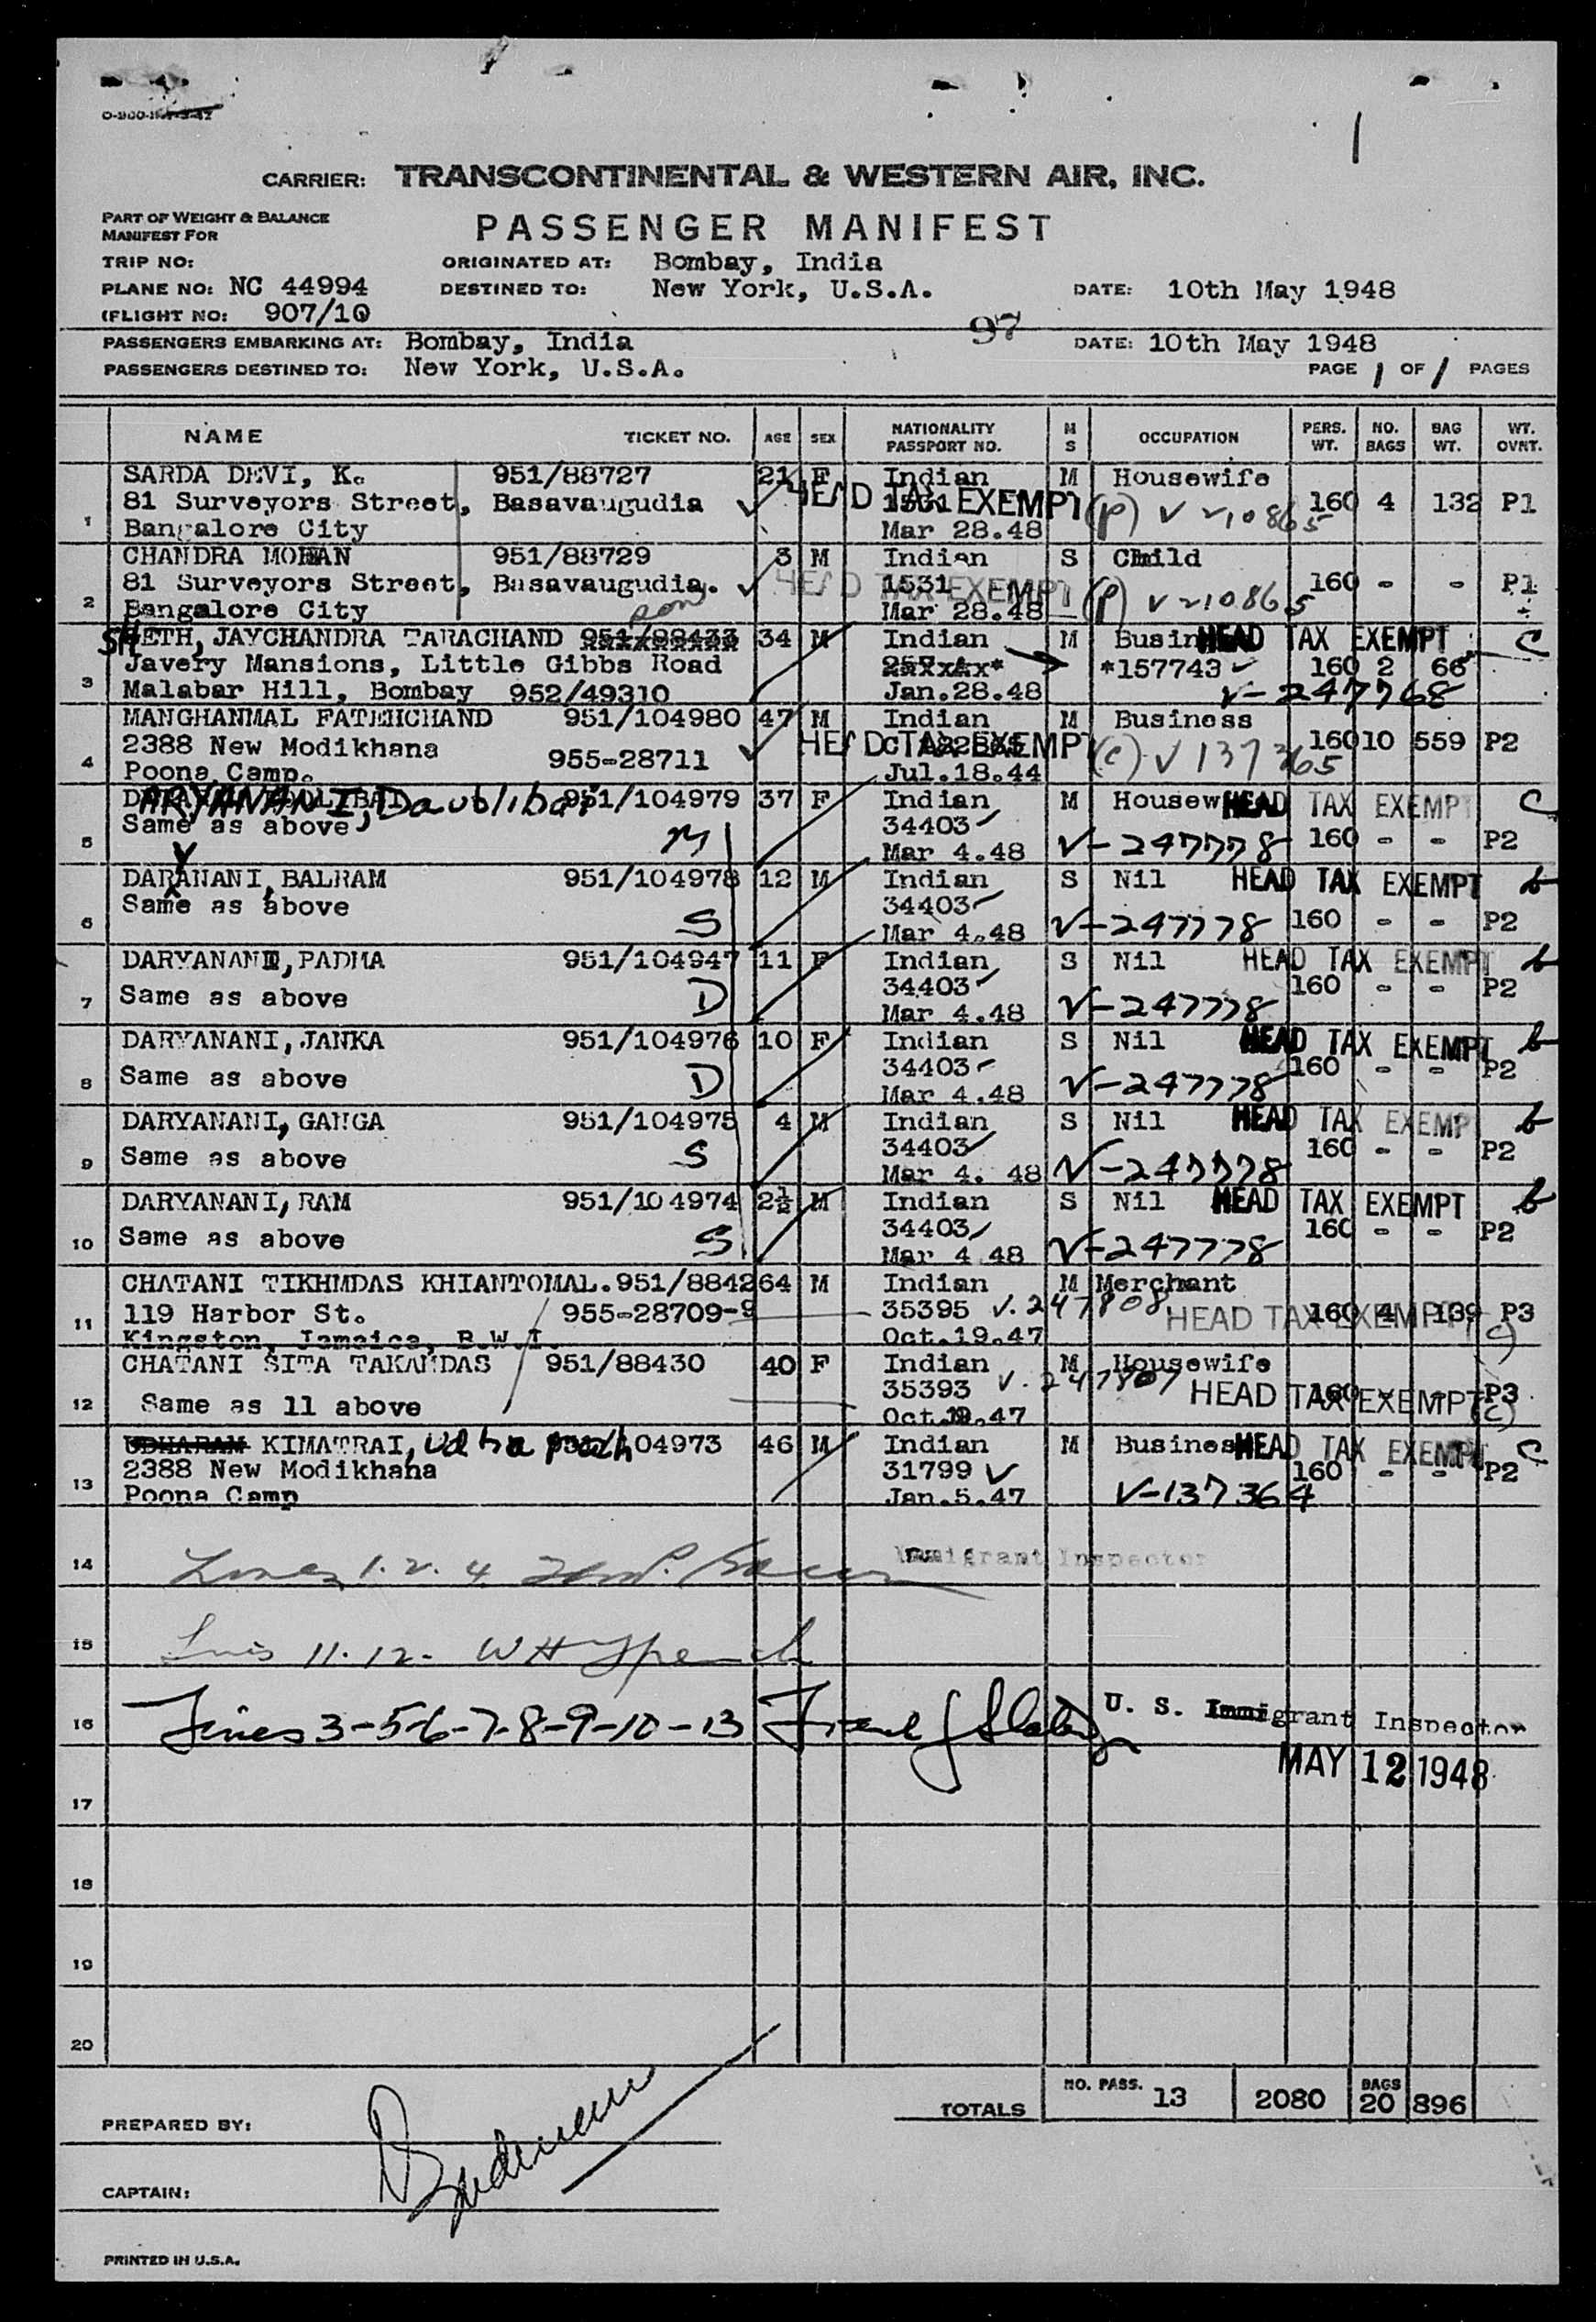 CARRIER: TRANSCONTINENTAL & WESTERN AIR, INC.
PART OF WEIGHT & BALANCE
MANIFEST FOR
PASSENGER MANIFEST
TRIP NO: ORIGINATED AT: Bombay, India
PLANE NO: NC 44994 DESTINED TO: New York, U.S.A. DATE: 10th May 1948
(FLIGHT NO: 907/10
97
PASSENGERS EMBARKING AT: Bombay, India DATE: 10th May 1948
PASSENGERS DESTINED TO: New York, U.S.A. PAGE 1 OF 1 PAGES
NAME TICKET NO. AGE SEX NATIONALITY PASSPORT NO. M S OCCUPATION PERS. WT. NO. BAGS BAG WT. WT. OVNT.
SARDA DEVI, K. 951/88727 21 F Indian M Housewife
81 Surveyors Street, Basavaugudia HEAD TAX EXEMPT (P) V 210865 160 4 132 P1
1 Bangalore City Mar 28.48
CHANDRA MOHAN 951/88729 3 M Indian S Child
81 Surveyors Street, Basavaugudia. 1531 HEAD TAX EXEMPT (P) V 210865 160 - - P1
2 Bangalore City son Mar 28.48
SHETH, JAYCHANDRA TARACHAND 34 M Indian M HEAD TAX EXEMPT C
Javery Mansions, Little Gibbs Road *157743 160 2 66
3 Malabar Hill, Bombay 952/49310 Jan.28.48 V-247768
MANGHANMAL FATEHCHAND 951/104980 47 M Indian M Business
2388 New Modikhana 955-28711 HEAD TAX EXEMPT (C) V 137365 160 10 559 P2
4 Poona Camp. Jul.18.44
ARYANANI, Daublibai 951/104979 37 F Indian M HEAD TAX EXEMPT C
Same as above M 34403 160 - - P2
5 Mar 4.48 V-247778
DARYANANI, BALRAM 951/104978 12 M Indian S Nil HEAD TAX EXEMPT b
Same as above S 34403 160 - - P2
6 Mar 4.48 V-247778
DARYANANI, PADMA 951/104947 11 F Indian S Nil HEAD TAX EXEMPT b
Same as above D 34403 160 - - P2
7 Mar 4.48 V-247778
DARYANANI, JANKA 951/104976 10 F Indian S Nil HEAD TAX EXEMPT b
Same as above D 34403 160 - - P2
8 Mar 4.48 V-247778
DARYANANI, GANGA 951/104975 4 M Indian S Nil HEAD TAX EXEMPT b
Same as above S 34403 160 - - P2
9 Mar 4. 48 V-247778
DARYANANI, RAM 951/104974 2½ M Indian S Nil HEAD TAX EXEMPT b
Same as above S 34403 160 - - P2
10 Mar 4.48 V-247778
CHATANI TIKHMDAS KHIANTOMAL. 951/88426 4 M Indian M Merchant
119 Harbor St. 955-28709-9 35395 V.247808 HEAD TAX EXEMPT 160 4 139 P3
11 Kingston, Jamaica, B.W.I. Oct.19.47 (C)
CHATANI SITA TAKANDAS 951/88430 40 F Indian M Housewife
12 Same as 11 above 35393 V.247807 HEAD TAX EXEMPT 160 - - P3
Oct.19.47 (C)
UDHARAM KIMATRAI, 04973 46 M Indian M Business HEAD TAX EXEMPT C
2388 New Modikhana 31799 160 - - P2
13 Poona Camp Jan.5.47 V-137364
14 Lines 1. 2. 4 Immigrant Inspector
15 Lines 11. 12.
16 Lines 3-5-6-7-8-9-10-13 U. S. Immigrant Inspector
MAY 12 1948
17
18
19
20
TOTALS NO. PASS. 13 2080 BAGS 20 896
PREPARED BY:
CAPTAIN:
PRINTED IN U.S.A.